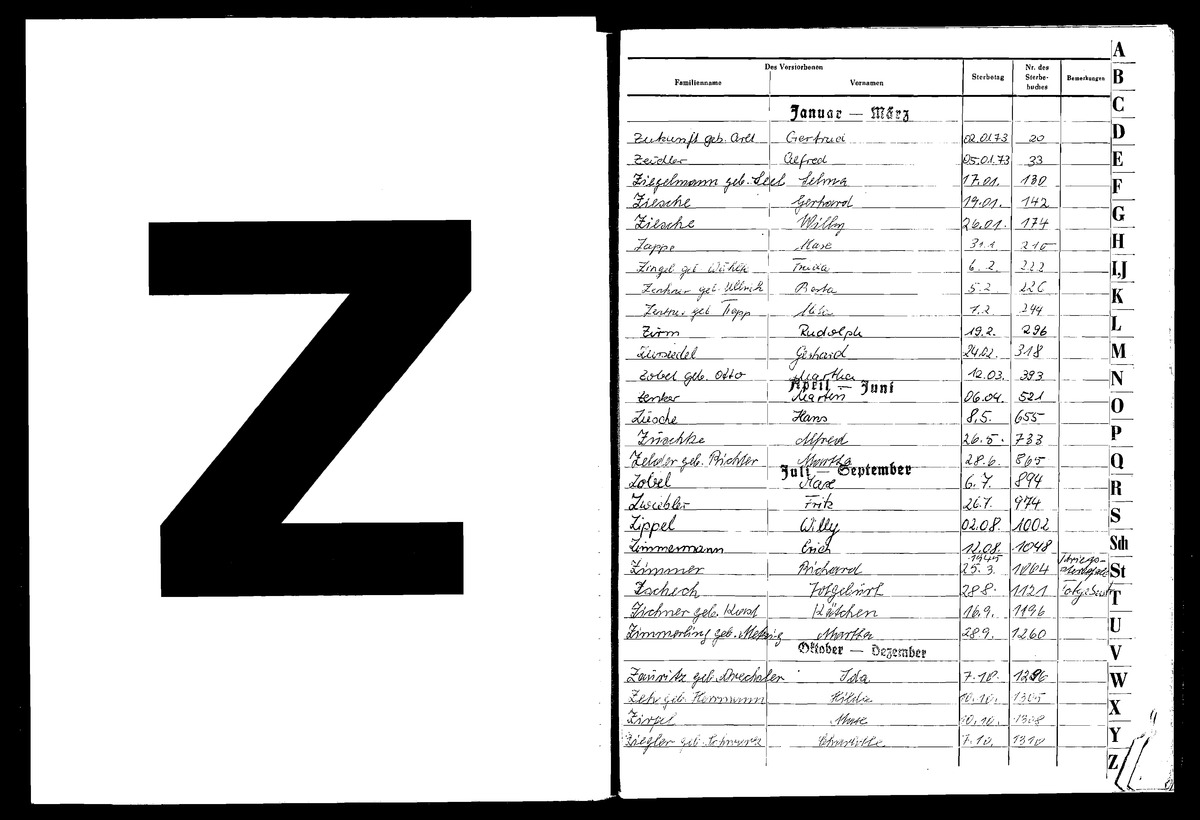 Z
Des Verstorbenen
Familienname Vornamen Sterbetag Nr. des Sterbe-buches Bemerkungen
Januar — März
Zukunft geb. Arlt Gertrud 02.01.73 20
Zeidler Alfred 05.01.73 33
Ziegelmann geb. Seel Selma 17.01. 130
Ziesche Gerhard 19.01. 142
Ziesche Willy 26.01. 174
Zappe Max 31.1. 210
Zingel geb. Frieda 6.2. 222
Zentner geb. Ullrich 5.2. 226
geb. Trepp 1.2. 244
Zirm Rudolph 19.2. 296
Gerhard 24.02. 318
Zobel geb. Otto Martha 12.03. 393
April — Juni
Zenker Martin 06.04. 521
Ziesche Hans 8.5. 655
Züschke Alfred 26.5. 733
geb. Richter Martha 28.6. 865
Juli — September
Zobel Max 6.7. 894
Zwiebler Fritz 26.7. 974
Zippel Willy 02.08. 1002
Zimmermann Erich 12.08. 1048
Zimmer Richard 25.3. 1945 1064 Kriegs-sterbefall
Zschech Totgeburt 28.8. 1121 Totgeburt
Zichner geb. Kätchen 16.9. 1196
Zimmerling geb. Martha 28.9. 1260
Oktober — Dezember
geb. Drechsler Ida 7.10. 1296
Zeh geb. Herrmann Hilda 10.10. 1305
Max 10.10. 1308
Ziegler geb. Schwarz Charlotte 7.10. 1310
A
B
C
D
E
F
G
H
I,J
K
L
M
N
O
P
Q
R
S
Sch
St
T
U
V
W
X
Y
Z